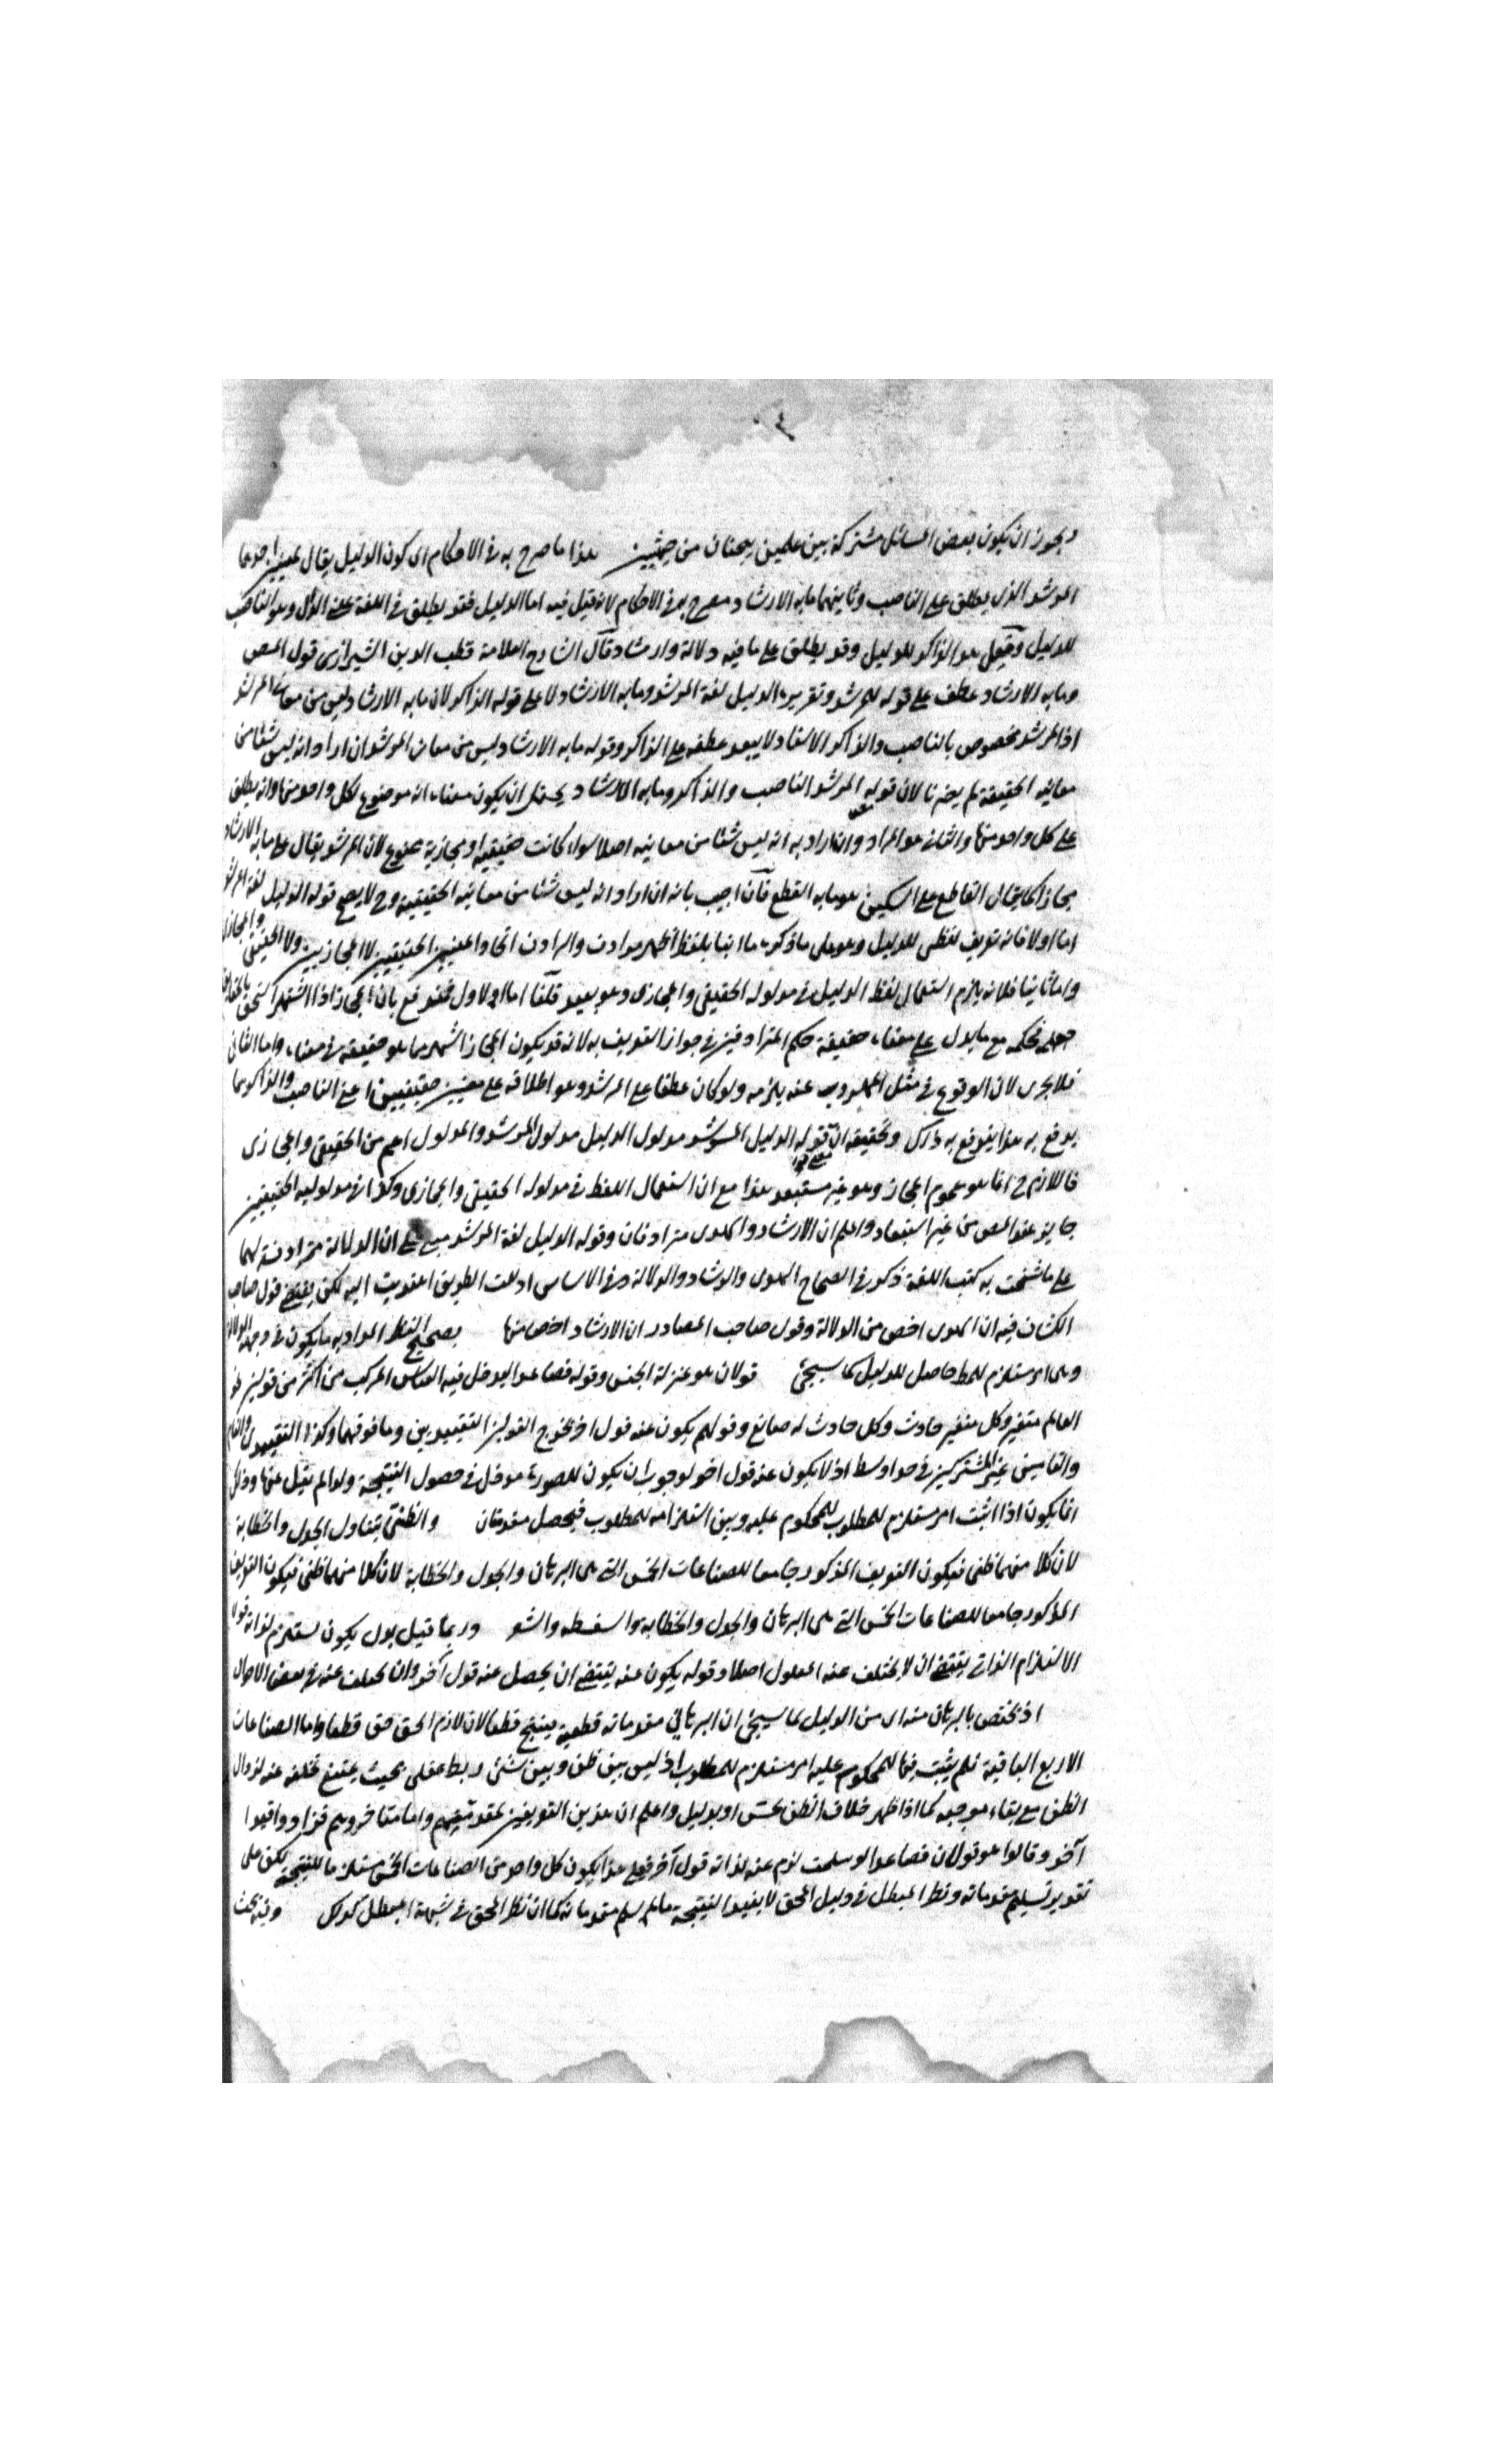 ويجوز ان يكون بعض المسائل مشتركة بين علمين يبحثان من جهتين هذا ما صرح به في الاحكام اى كون الدليل يقال لمعنيين احدهما
المرشد الذى يطلق على الناصب وثانيهما ما به الارشاد مصرح به في الاحكام لانه قيل فيه اما الدليل فقد يطلق في اللغة على الدال وهو الناصب
للدليل وقيل هو الذاكر للدليل وقد يطلق على ما فيه دلالة وارشاد قال الشارح العلامة قطب الدين الشيرازى قول المص
وما به الارشاد عطف على قوله المرشد وتقريره الدليل لغة المرشد وما به الارشاد لا على قوله الذاكر لان ما به الارشاد ليس من معانى المرشد
اذ المرشد مخصوص بالناصب والذاكر الاستاد لا يبعد عطفه على الذاكر وقوله ما به الارشاد ليس من معانى المرشد ان اراد انه ليس شئا من
معانيه الحقيقة لم يضرنا لان قوله المرشد الناصب والذاكر وما به الارشاد يحتمل ان يكون معناه انه موضوع لكل واحد منها وانه يطلق
على كل واحد منها والثانى هو المراد وان اراد به انه ليس شئا من معانيه اصلا سواء كانت حقيقية او مجازية ممنوع لان المرشد يقال على ما به الارشاد
مجازا كما يقال القاطع على السكين وهو ما به القطع فان اجيب بانه ان اراد انه ليس شئا من معانيه الحقيقية وح لا يصح قوله الدليل لغة المرشد
اما اولا فانه تعريف لفظى للدليل وهو على ما ذكره ما انبأ بلفظ اظهر مرادف والمرادف اتحاد المعنيين الحقيقيين لا المجازيين ولا الحقيقى والمجازى
واما ثانيا فلانه يلزم استعمال لفظ الدليل في مدلوله الحقيقى والمجازى وهو بعيد قلنا اما الاول فيدفع بان المجاز اذا اشتهر التحق بالحقايق
فحكمه مع ما يدل على معناه حقيقة حكم المترادفين في جواز التعريف به لانه قد يكون المجاز اشهر مما هو حقيقة في معناه واما الثانى
فلا يجرى لان الوقوع في مثل المهروب عنه يلزمه ولو كان عطفا على المرشد وهو اطلاقه على معنيين حقيقيين اعنى الناصب والذاكر بما
يدفع به هذا يندفع به ذاك وتحقيقه ان قوله الدليل المرشد مدلول الدليل مدلول المرشد والمدلول اعم من الحقيقى والمجازى
فاللازم ح انما هو عموم المجاز وهو غير مستبعد هذا مع ان استعمال اللفظ في مدلوله الحقيقى والمجازى وكذا في مدلوليه الحقيقيين
جايز عند المص من غير استبعاد واعلم ان الارشاد والهدى مترادفان وقوله الدليل لغة المرشد مبنى على ان الدلالة مترادفة لهما
على ما شحنت به كتب اللغة ذكر في الصحاح الهدى والرشاد والدلالة وفي الاساس ادللت الطريق اهتديت اليه لكن يقتضى قول صاحب
الكشاف فيه ان الهدى اخص من الدلالة وقول صاحب المصادر ان الارشاد اخص منها بصحيح النظر المراد به ما يكون في وجه الدلالة
وهى امر مستلزم للمط حاصل للدليل كما سيجئ قولان هو بمنزلة الجنس وقوله فصاعدا ليدخل فيه القياس المركب من اكثر من قولين نحو
العالم متغير وكل متغير حادث وكل حادث له صانع وقولهم يكون عنه قول آخر يخرج القولين التقييديين وما فوقهما وكذا التقييدى والتام
والتامين غير المشتركين في حد اوسط اذ لا يكون عنه قول آخر لوجوب ان يكون للصورة مدخل في حصول النتيجة ولذا لم يقل عنها وذلك
انما يكون اذا اثبت امر مستلزم للمطلوب للمحكوم عليه وبين استلزامه للمطلوب فيحصل مقدمتان والظنى يتناول الجدل والخطابة
لان كلا منهما ظنى فيكون التعريف المذكور جامعا للصناعات الخمس التى هى البرهان والجدل والخطابة لان كلا منهما ظنى فيكون التعريف
المذكور جامعا للصناعات الخمس التى هى البرهان والجدل والخطابة والسفسطه والشعر وربما قيل بدل يكون يستلزم لذاته قولا
الاستلزام الذاتى يقتضى ان لا يختلف عنه المعلول اصلا وقوله يكون عنه يقتضى ان يحصل عنه قول آخر وان تخلف عنه في بعض الاحوال
اذ يختص بالبرهان منه اى من الدليل كما سيجئ ان البرهانى مقدماته قطعية ينتج قطعا لان لازم الحق حق قطعا واما الصناعات
الاربع الباقية فلم يثبت فيها للمحكوم عليه امر مستلزم للمطلوب اذ ليس بين ظن وبين شئ ربط عقلى بحيث يمتنع تخلفه عنه لزوال
الظن مع بقاء موجبه كما اذا ظهر خلاف الظن بحس او بدليل واعلم ان هذين التعريفين لمتقدميهم واما متاخروهم فزادوا قيدا
آخر وقالوا هو قولان فصاعدا لو سلمت لزم عنه لذاته قول آخر فعلى هذا يكون كل واحد من الصناعات الخمس مستلزما للنتيجة لكن على
تقدير تسليم مقدماته ونظر المبطل في دليل المحق لا يفيد النتيجة ما لم يسلم مقدماته كما ان نظر المحق في شبهة المبطل كذلك وفيه بحث